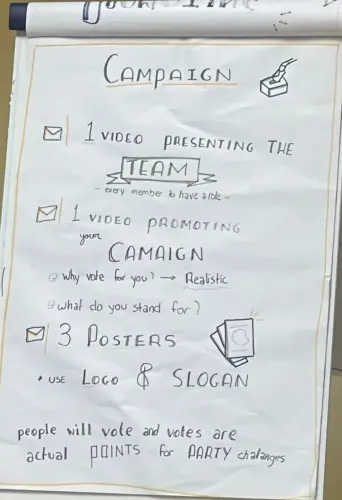 CAMPAIGN
1 VIDEO PRESENTING THE
TEAM
- every member to have a role -
1 VIDEO PROMOTING
your
CAMAIGN
Why vote for you? → Realistic
what do you stand for?
3 POSTERS
• USE LOGO & SLOGAN
people will vote and votes are
actual POINTS for PARTY chalanges